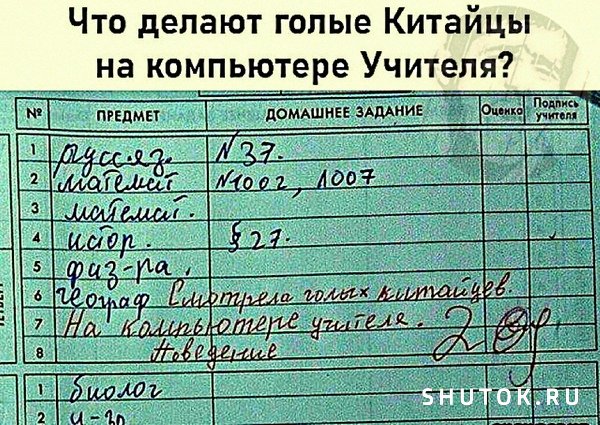 Что делают голые Китайцы
на компьютере Учителя?
№ ПРЕДМЕТ ДОМАШНЕЕ ЗАДАНИЕ Оценка Подпись учителя
1 русс.яз. №37.
2 математ №1002, 1007
3 математ.
4 истор. § 27.
5 физ-ра.
6 географ Смотрела голых китайцев.
7 На компьютере учителя. 2
8 Поведение
1 биолог
SHUTOK.RU
2 и-